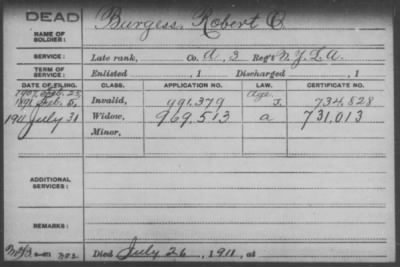 DEAD
NAME OF SOLDIER: Burgess, Robert C.
SERVICE: Late rank, Co. A 3 Reg't N.Y.L.A.
TERM OF SERVICE: Enlisted , 1 Discharged , 1
DATE OF FILING. CLASS. APPLICATION NO. LAW. CERTIFICATE NO.
1907 Feb. 25, Age
1891 Feb. 5, Invalid, 991,379 J. 734,828
1911 July 31 Widow, 969,513 a 731,013
Minor,
ADDITIONAL SERVICES:
REMARKS:
Died July 26, 1911, at